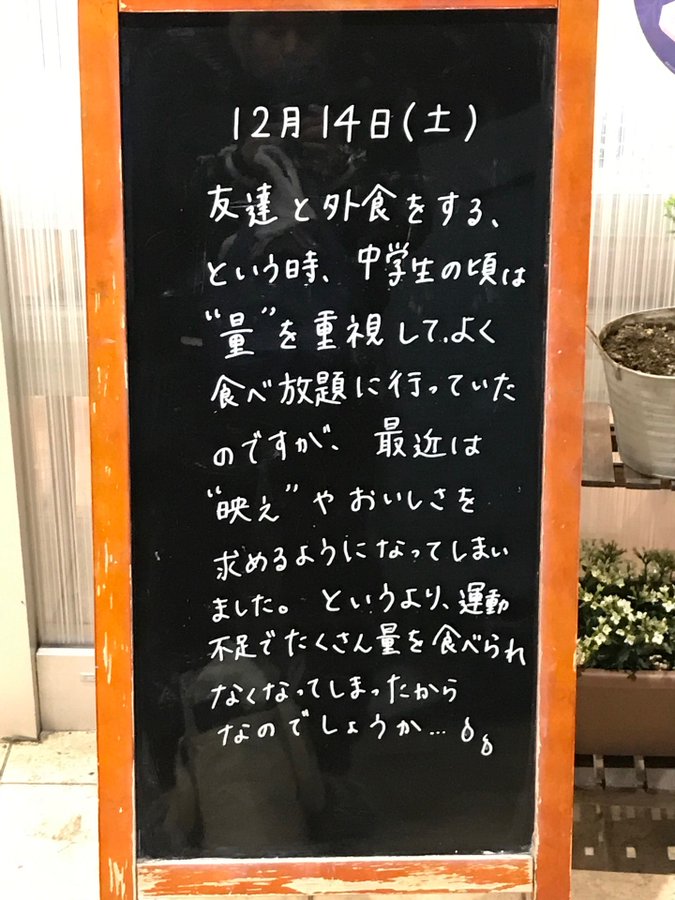 12月14日(土)
友達と外食をする、
という時、中学生の頃は
“量”を重視して、よく
食べ放題に行っていた
のですが、最近は
“映え”やおいしさを
求めるようになってしまい
ました。というより、運動
不足でたくさん量を食べられ
なくなってしまったから
なのでしょうか…